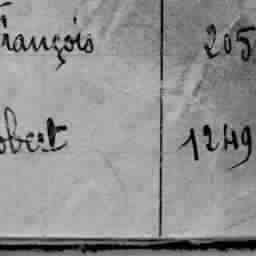 François 205
obert 1249